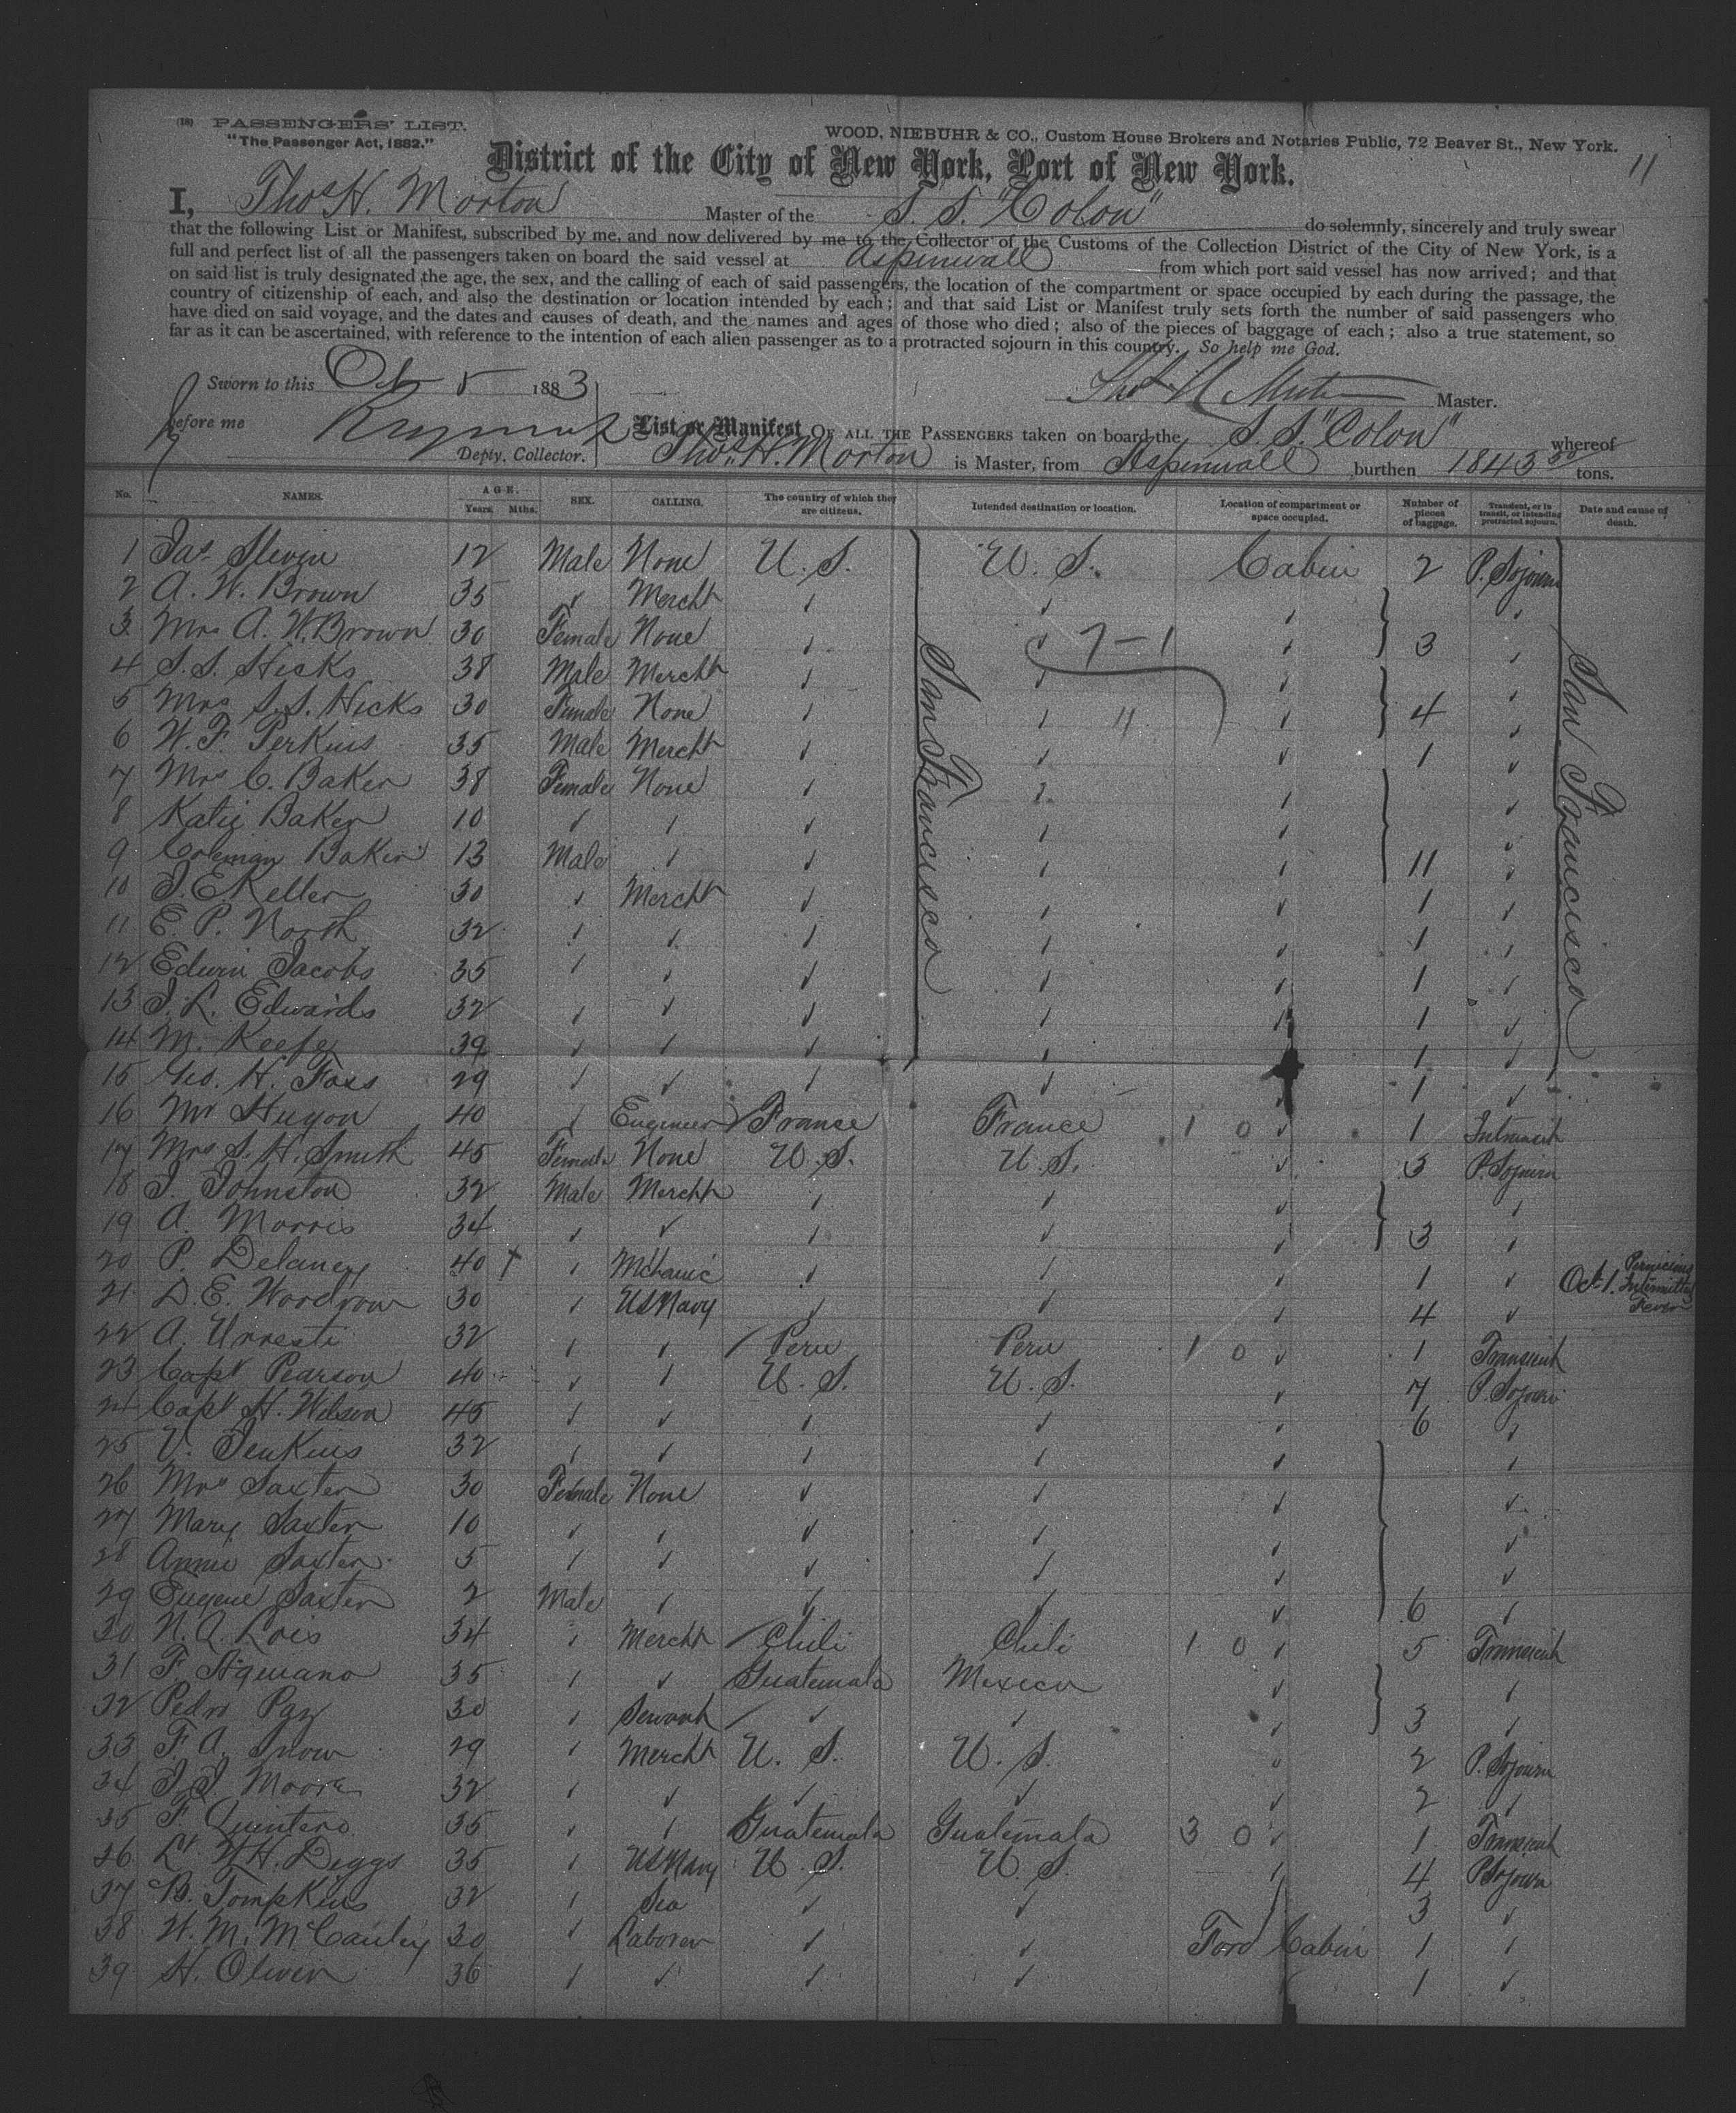 (18) PASSENGERS' LIST.
"The Passenger Act, 1882."
WOOD, NIEBUHR & CO., Custom House Brokers and Notaries Public, 72 Beaver St., New York.
11
District of the City of New York, Port of New York.
I, Thos H. Morton Master of the S. S. "Colon" do solemnly, sincerely and truly swear
that the following List or Manifest, subscribed by me, and now delivered by me to the Collector of the Customs of the Collection District of the City of New York, is a
full and perfect list of all the passengers taken on board the said vessel at Aspinwall from which port said vessel has now arrived; and that
on said list is truly designated the age, the sex, and the calling of each of said passengers, the location of the compartment or space occupied by each during the passage, the
country of citizenship of each, and also the destination or location intended by each; and that said List or Manifest truly sets forth the number of said passengers who
have died on said voyage, and the dates and causes of death, and the names and ages of those who died; also of the pieces of baggage of each; also a true statement, so
far as it can be ascertained, with reference to the intention of each alien passenger as to a protracted sojourn in this country. So help me God.
Sworn to this Oct 5 1883
Master.
before me
Depty. Collector.
List or Manifest OF ALL THE PASSENGERS taken on board the S. S. "Colon" whereof
Thos. H. Morton is Master, from Aspinwall burthen 1843 tons.
No. NAMES. AGE. Years. Mths. SEX. CALLING. The country of which they are citizens. Intended destination or location. Location of compartment or space occupied. Number of pieces of baggage. Transient, or in transit, or intending protracted sojourn. Date and cause of death.
1 Jas Slevin 12 Male None U. S. U. S. Cabin 2 P. Sojourn
2 A. W. Brown 35 ✓ Mercht ✓ ✓ ✓ ✓
3 Mrs A. W. Brown 30 Female None ✓ ✓ 7-1 ✓ 3 ✓
4 S. S. Hicks 38 Male Mercht ✓ ✓ ✓ ✓
5 Mrs S. S. Hicks 30 Female None ✓ ✓ 11 ✓ 4 ✓
6 W. F. Perkins 35 Male Mercht ✓ ✓ ✓ 1 ✓
7 Mrs C. Baker 38 Female None ✓ ✓ ✓ ✓
8 Katie Baker 10 ✓ ✓ ✓ ✓ ✓ ✓
9 Coleman Baker 13 Male ✓ ✓ ✓ ✓ 11 ✓
10 J. E. Keller 30 ✓ Mercht ✓ ✓ ✓ 1 ✓
11 E. P. North 32 ✓ ✓ ✓ ✓ ✓ 1 ✓
12 Edwin Jacobs 35 ✓ ✓ ✓ ✓ ✓ 1 ✓
13 J. L. Edwards 32 ✓ ✓ ✓ ✓ ✓ 1 ✓
14 M. Keefe 39 ✓ ✓ ✓ ✓ 1 ✓
San Francisco
San Francisco
15 Geo. H. Foss 29 ✓ ✓ ✓ ✓ ✓ 1 ✓
16 Mr Hugon 40 ✓ Engineer France France 1 0 ✓ 1 Intransit
17 Mrs S. H. Smith 45 Female None U. S. U. S. ✓ 3 P. Sojourn
18 J. Johnston 32 Male Mercht ✓ ✓ ✓ ✓
19 A. Morris 34 ✓ ✓ ✓ ✓ ✓ 3 ✓
20 P. Delaney 40 † ✓ Mchanic ✓ ✓ ✓ 1 ✓ Oct 1. Pernicious Intermittent Fever
21 D. E. Woodrow 30 ✓ US Navy ✓ ✓ ✓ 4 ✓
22 A. Urresti 32 ✓ ✓ Peru Peru 1 0 ✓ 1 Transient
23 Capt Pearson 40 ✓ ✓ U. S. U. S. ✓ 7 P. Sojourn
24 Capt H. Wilson 45 ✓ ✓ ✓ ✓ ✓ 6 ✓
25 V. Jenkins 32 ✓ ✓ ✓ ✓ ✓ ✓
26 Mrs Saxter 30 Female None ✓ ✓ ✓ ✓
27 Mary Saxter 10 ✓ ✓ ✓ ✓ ✓ ✓
28 Annie Saxter 5 ✓ ✓ ✓ ✓ ✓ ✓
29 Eugene Saxter 2 Male ✓ ✓ ✓ ✓ 6 ✓
30 N. A. Lois 34 ✓ Mercht Chili Chili 1 0 ✓ 5 Transient
31 F. Aquiano 35 ✓ ✓ Guatemala Mexico ✓ ✓
32 Pedro Pay 30 ✓ Servant ✓ ✓ ✓ 3 ✓
33 F. A. Snow 29 ✓ Mercht U. S. U. S. ✓ 2 P. Sojourn
34 J. J. Moore 32 ✓ ✓ ✓ ✓ ✓ 2 ✓
35 F. Quintero 35 ✓ ✓ Guatemala Guatemala 3 0 ✓ 1 Transient
36 Lt. W. H. Diggs 35 ✓ US Navy U. S. U. S. ✓ 4 P. Sojourn
37 B. Tompkins 32 ✓ Sea ✓ ✓ 3 ✓
38 W. M. McCauley 30 ✓ Laborer ✓ ✓ Ford Cabin 1 ✓
39 H. Oliver 36 ✓ ✓ ✓ ✓ 1 ✓